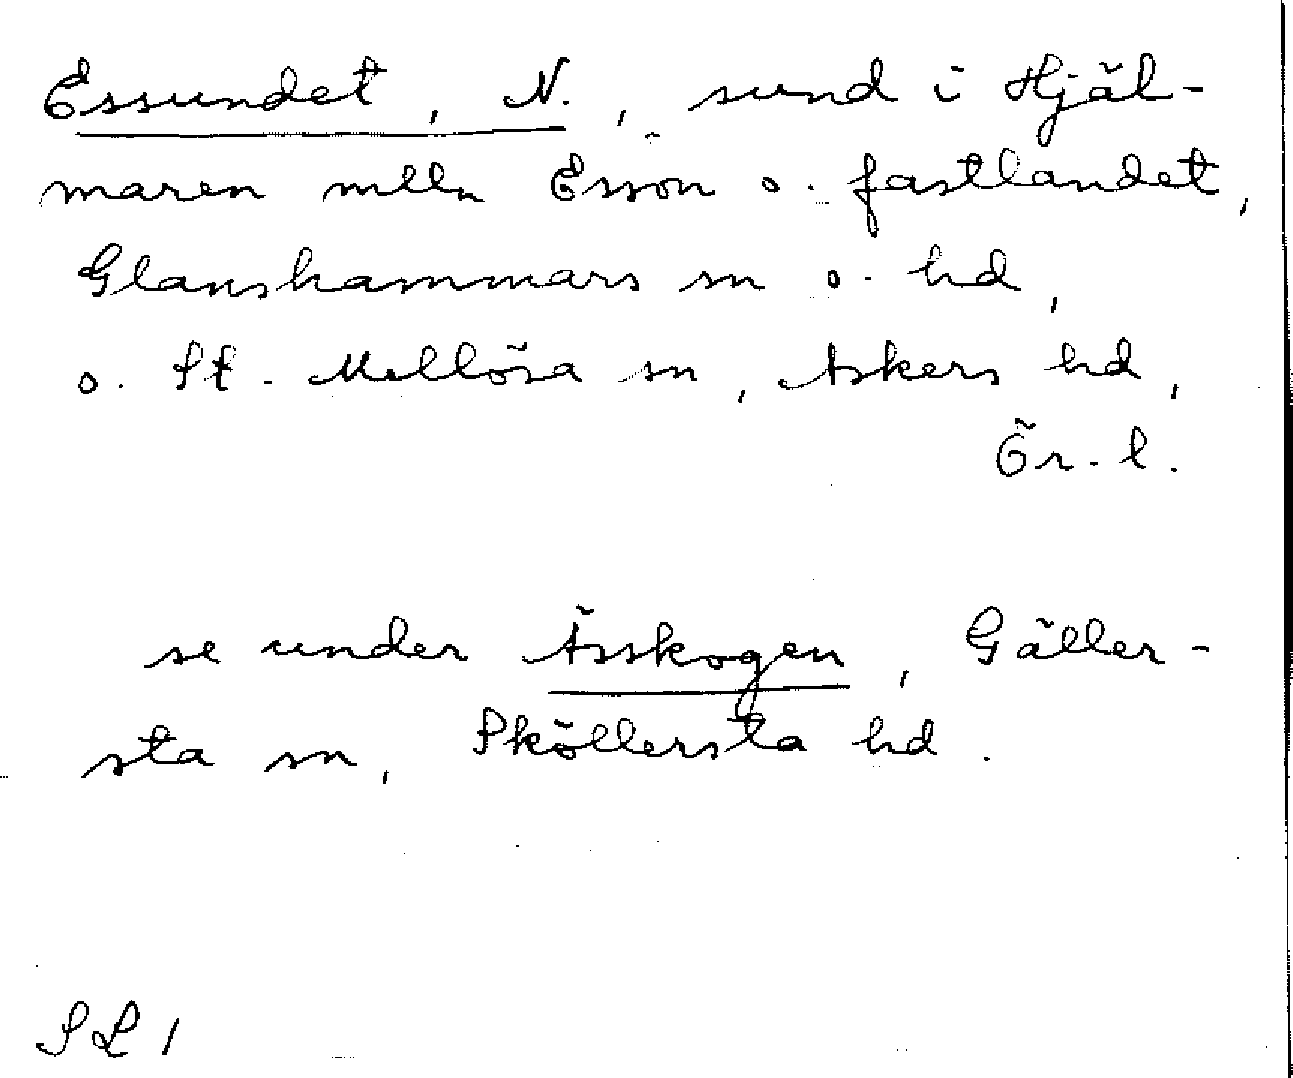 Essundet, N., sund i Hjäl-
maren mlln Esson o. fastlandet,
Glanshammars sn o. hd,
o. St. Mellösa sn, Askers hd,
Ör. l.
se under Ässkogen, Gäller-
sta sn, Sköllersta hd.
SL 1